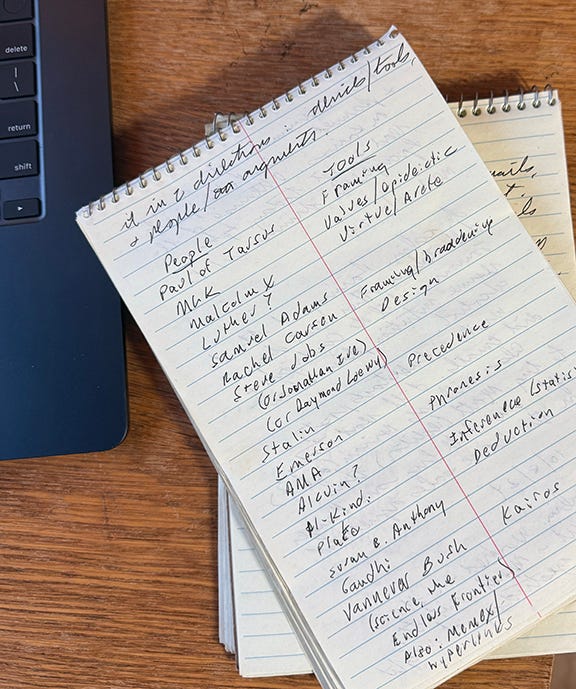 delete
|
\
return
shift
it in 2 directions: devices/tools,
+ people/ arguments.
People
Paul of Tarsus
MLK
Malcolm X
Luther?
Samuel Adams
Rachel Carson
Steve Jobs
(or Jonathan Ive)
(or Raymond Loewy)
Stalin
Emerson
AMA
Alcuin?
Al-Kindi
Plato
Susan B. Anthony
Gandhi
Vannevar Bush
(Science, the
Endless Frontier)
Also: Memex/
hyperlinks
Tools
Framing
Values/Epideictic
Virtue/Arete
Framing/broadening
Design
Precedence
Phronesis
Inference (statis
Deduction
Kairos